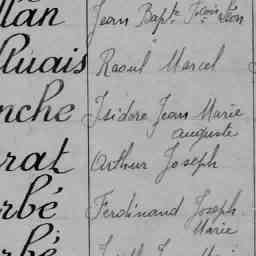 llan Jean Bapte Fçois Léon
luais Raoul Marcel
nche Isidore Jean Marie
auguste
rat Arthur Joseph
rbé Ferdinand Joseph
Marie
rbé